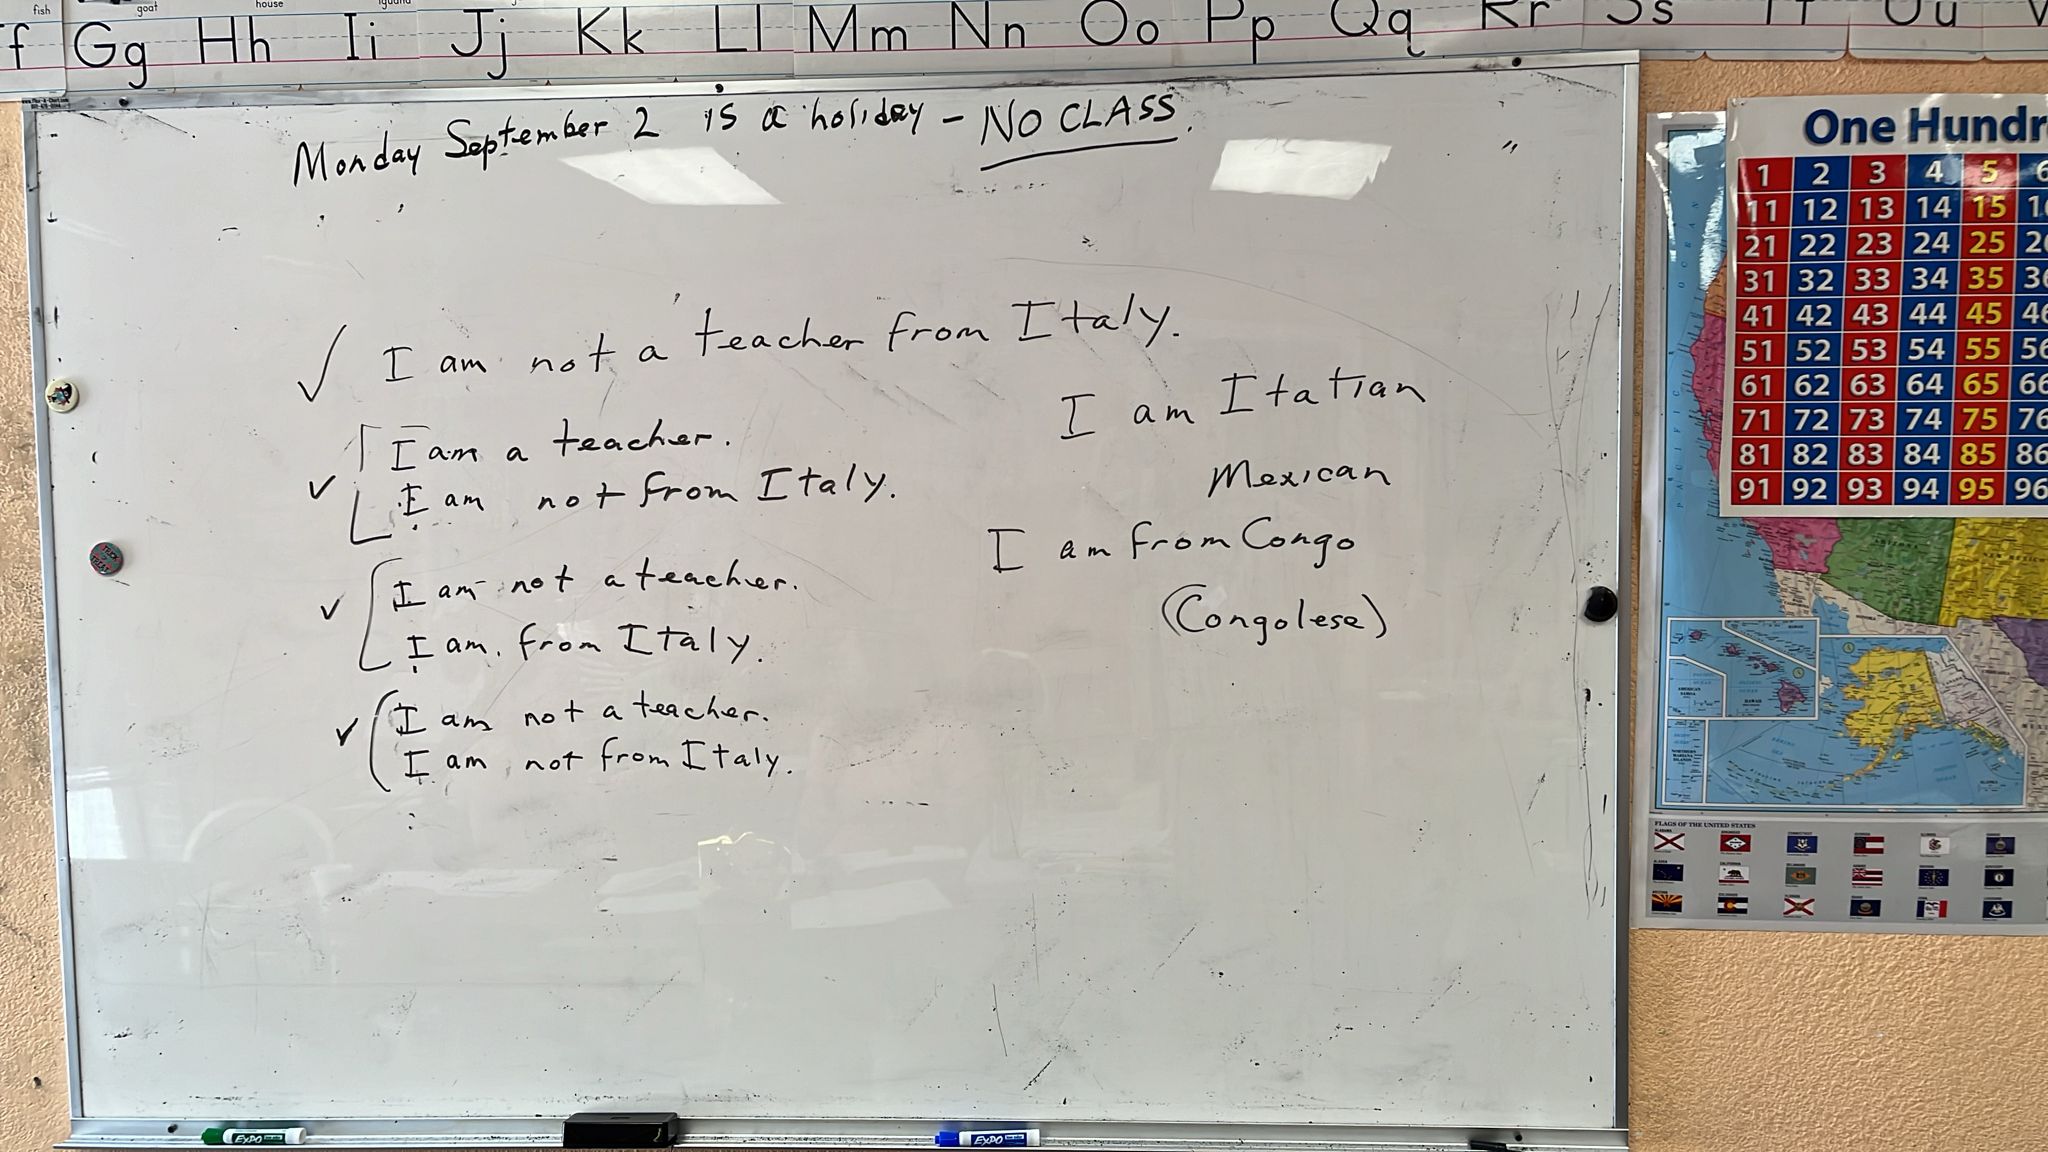 fish goat house iguana
f Gg Hh Ii Jj Kk Ll Mm Nn Oo Pp Qq Rr Ss Tt Uu
Monday September 2 is a holiday - NO CLASS.
I am not a teacher from Italy.
I am a teacher.
I am not from Italy.
I am not a teacher.
I am from Italy.
I am not a teacher.
I am not from Italy.
I am Itatian
Mexican
I am from Congo
(Congolese)
EXPO
EXPO
One Hundr
1 2 3 4 5 6
11 12 13 14 15 1
21 22 23 24 25 2
31 32 33 34 35 3
41 42 43 44 45 46
51 52 53 54 55 56
61 62 63 64 65 66
71 72 73 74 75 76
81 82 83 84 85 86
91 92 93 94 95 96
PACIFIC OCEAN
ARIZONA
NEW MEXICO
HAWAII
AMERICAN SAMOA
NORTHERN MARIANA ISLANDS
FLAGS OF THE UNITED STATES